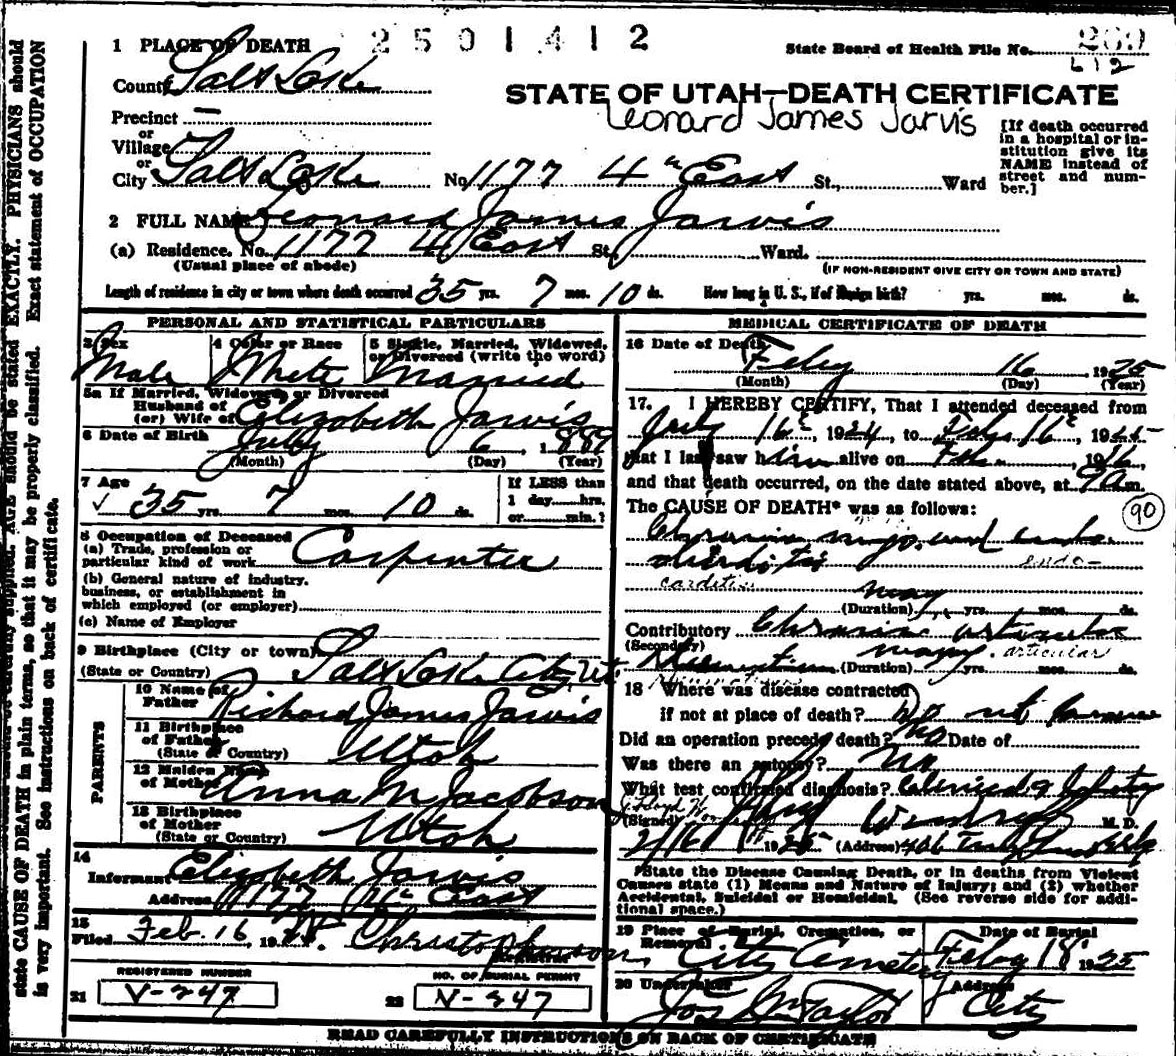 1 PLACE OF DEATH 2501412 State Board of Health File No. 269
County Salt Lake 612
STATE OF UTAH—DEATH CERTIFICATE
Precinct —
Leonard James Jarvis
or
Village
or
City Salt Lake No. 1177 4th East St., Ward
[If death occurred in a hospital or institution give its NAME instead of street and number.]
2 FULL NAME Leonard James Jarvis
(a) Residence. No. 1177 4 East St. Ward.
(Usual place of abode) (IF NON-RESIDENT GIVE CITY OR TOWN AND STATE)
Length of residence in city or town where death occurred 35 yrs. 7 mos. 10 ds. How long in U. S., if of foreign birth? yrs. mos. ds.
PERSONAL AND STATISTICAL PARTICULARS
3 Sex 4 Color or Race 5 Single, Married, Widowed, or Divorced (write the word)
Male White Married
5a If Married, Widowed, or Divorced
Husband of
(or) Wife of Elizabeth Jarvis
6 Date of Birth July 6, 1889
(Month) (Day) (Year)
7 Age If LESS than
35 yrs. 7 mos. 10 ds. 1 day hrs.
or min.?
8 Occupation of Deceased
(a) Trade, profession or
particular kind of work Carpenter
(b) General nature of industry,
business, or establishment in
which employed (or employer)
(c) Name of Employer
9 Birthplace (City or town)
(State or Country) Salt Lake City, Ut.
PARENTS
10 Name of
Father Richard James Jarvis
11 Birthplace
of Father
(State or Country) Utah
12 Maiden Name
of Mother Anna M Jacobson
13 Birthplace
of Mother
(State or Country) Utah
14
Informant Elizabeth Jarvis
Address 1177 East
15
Filed Feb. 16, 19
Registrar
REGISTERED NUMBER NO. OF BURIAL PERMIT
21 V-247 22 N-247
MEDICAL CERTIFICATE OF DEATH
16 Date of Death Feby 16, 1925
(Month) (Day) (Year)
17. I HEREBY CERTIFY, That I attended deceased from
July 16, 1924, to Feb 16, 19
that I last saw him alive on Feb. 16,
and that death occurred, on the date stated above, at 9 a m.
The CAUSE OF DEATH* was as follows: 90
Chronic and endo
endo-
carditis
many
(Duration) yrs. mos. ds.
Contributory Chronic articular
(Secondary) many articular
(Duration) yrs. mos. ds.
18 Where was disease contracted
if not at place of death? Do not know
Did an operation precede death? No Date of
Was there an autopsy? No
What test confirmed diagnosis? Clinical &
(Signed) M. D.
2/16 1925 (Address) 406
*State the Disease Causing Death, or in deaths from Violent
Causes state (1) Means and Nature of Injury; and (2) whether
Accidental, Suicidal or Homicidal. (See reverse side for addi-
tional space.)
19 Place of Burial, Cremation, or Removal Date of Burial
City Cemetery Feby 18 1925
20 Undertaker Address
Jos Wm Taylor City
READ CAREFULLY INSTRUCTIONS ON BACK OF CERTIFICATE
AGE should be stated EXACTLY. PHYSICIANS should
state CAUSE OF DEATH in plain terms, so that it may be properly classified. Exact statement of OCCUPATION
is very important. See instructions on back of certificate.